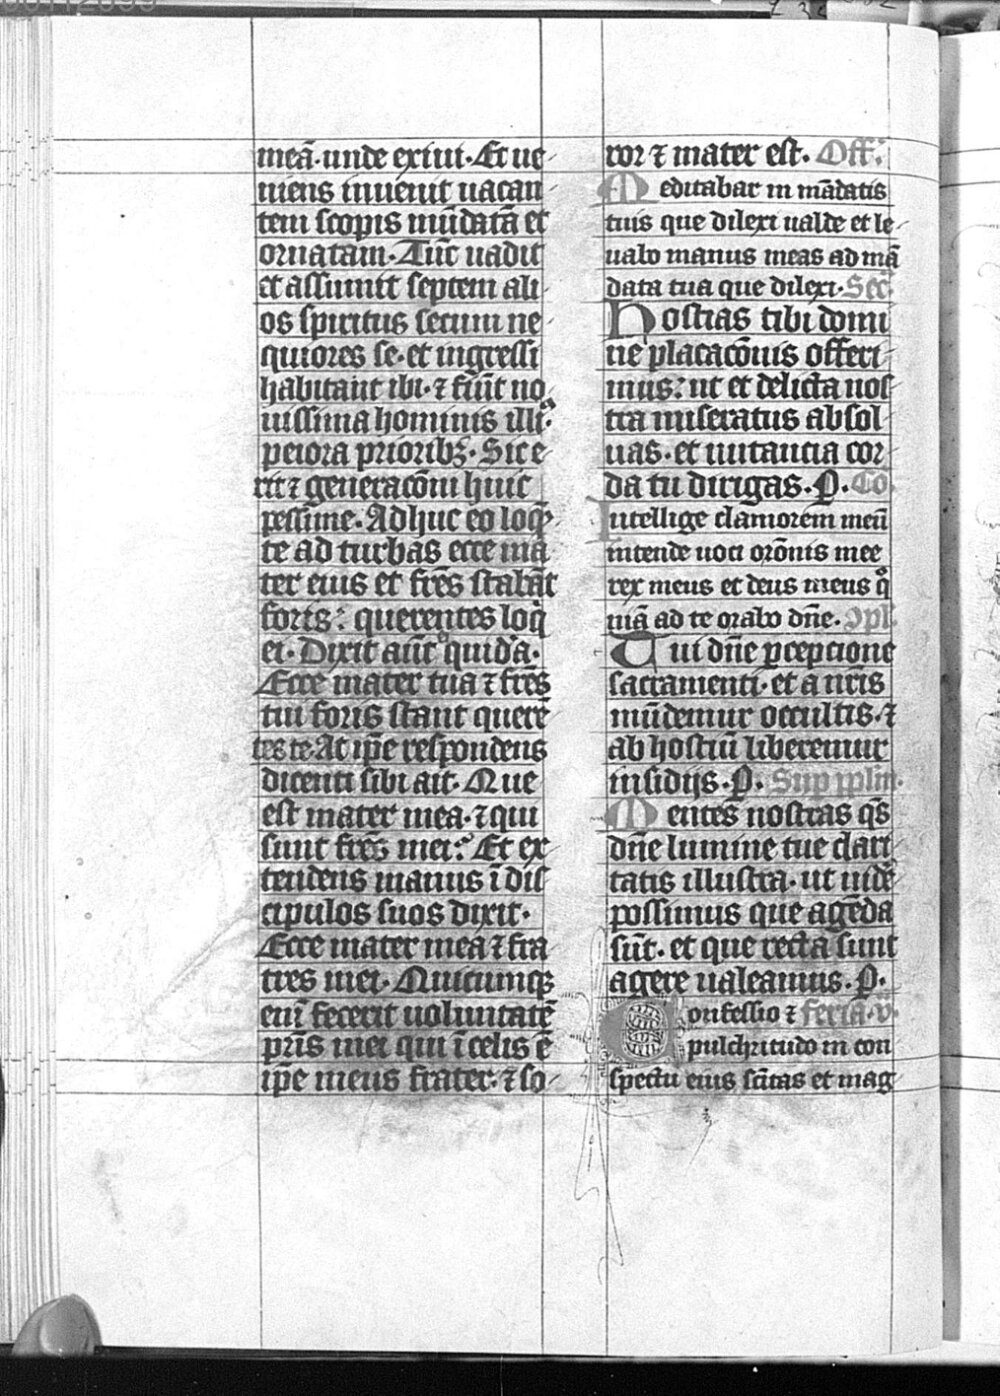 meā·unde exiui·Et ue-
niens inuenit uacan
tem scopis mūdatā et
ornatam·Tūc uadit
et assumit septem ali-
os spiritus secum ne-
quiores se·et ingressi
habitant ibi·⁊ fiūt no-
uissima hominis illiꝰ·
peiora prioribꝫ·Sic e-
rit ⁊ generacōni huic
pessime·Adhuc eo loq̄-
te ad turbas ecce ma
ter eius et fr̄es stabāt
foris: querentes loqͥ
ei·Dixit aūt ei quidā·
Ecce mater tua ⁊ fr̄es
tui foris stant querē
tes te·At ip̄e respondens
dicenti sibi ait·Que
est mater mea·⁊ qui
sunt fr̄es mei: Et ex
tendens manus ī dis
cipulos suos dixit·
Ecce mater mea ⁊ fra
tres mei·Quicumqꝫ
eni fecerit uoluntatē
pr̄is mei qui ī celis ē
ip̄e meus frater·⁊ so-
ror ⁊ mater est. Off.
Meditabar in mādatis
tuis que dilexi ualde et le-
uabo manus meas ad mā
data tua que dilexi·Sec̄
Hostias tibi domi
ne placacōnis offeri-
mus: ut et delicta nos
tra miseratus absol
uas·et nutancia cor
da tu dirigas·P·Cō
Intellige clamorem meū
intende uoci orōnis mee
rex meus et deus meus qͦ
niā ad te orabo dn̄e·Cpl
Tui dn̄e ꝑceptione
sacramenti·et a nr̄is
mūdemur occultis·⁊
ab hostiū liberemur
insidijs·P· Sup pplm̄·
Mentes nostras qs̄
dn̄e lumine tue clari-
tatis illustra·ut uidē
possimus que agēda
sūt·et que recta sunt
agere ualeamus·P·
Confessio ⁊ feria·v·
pulchritudo in con
spectu eius sc̄itas et mag